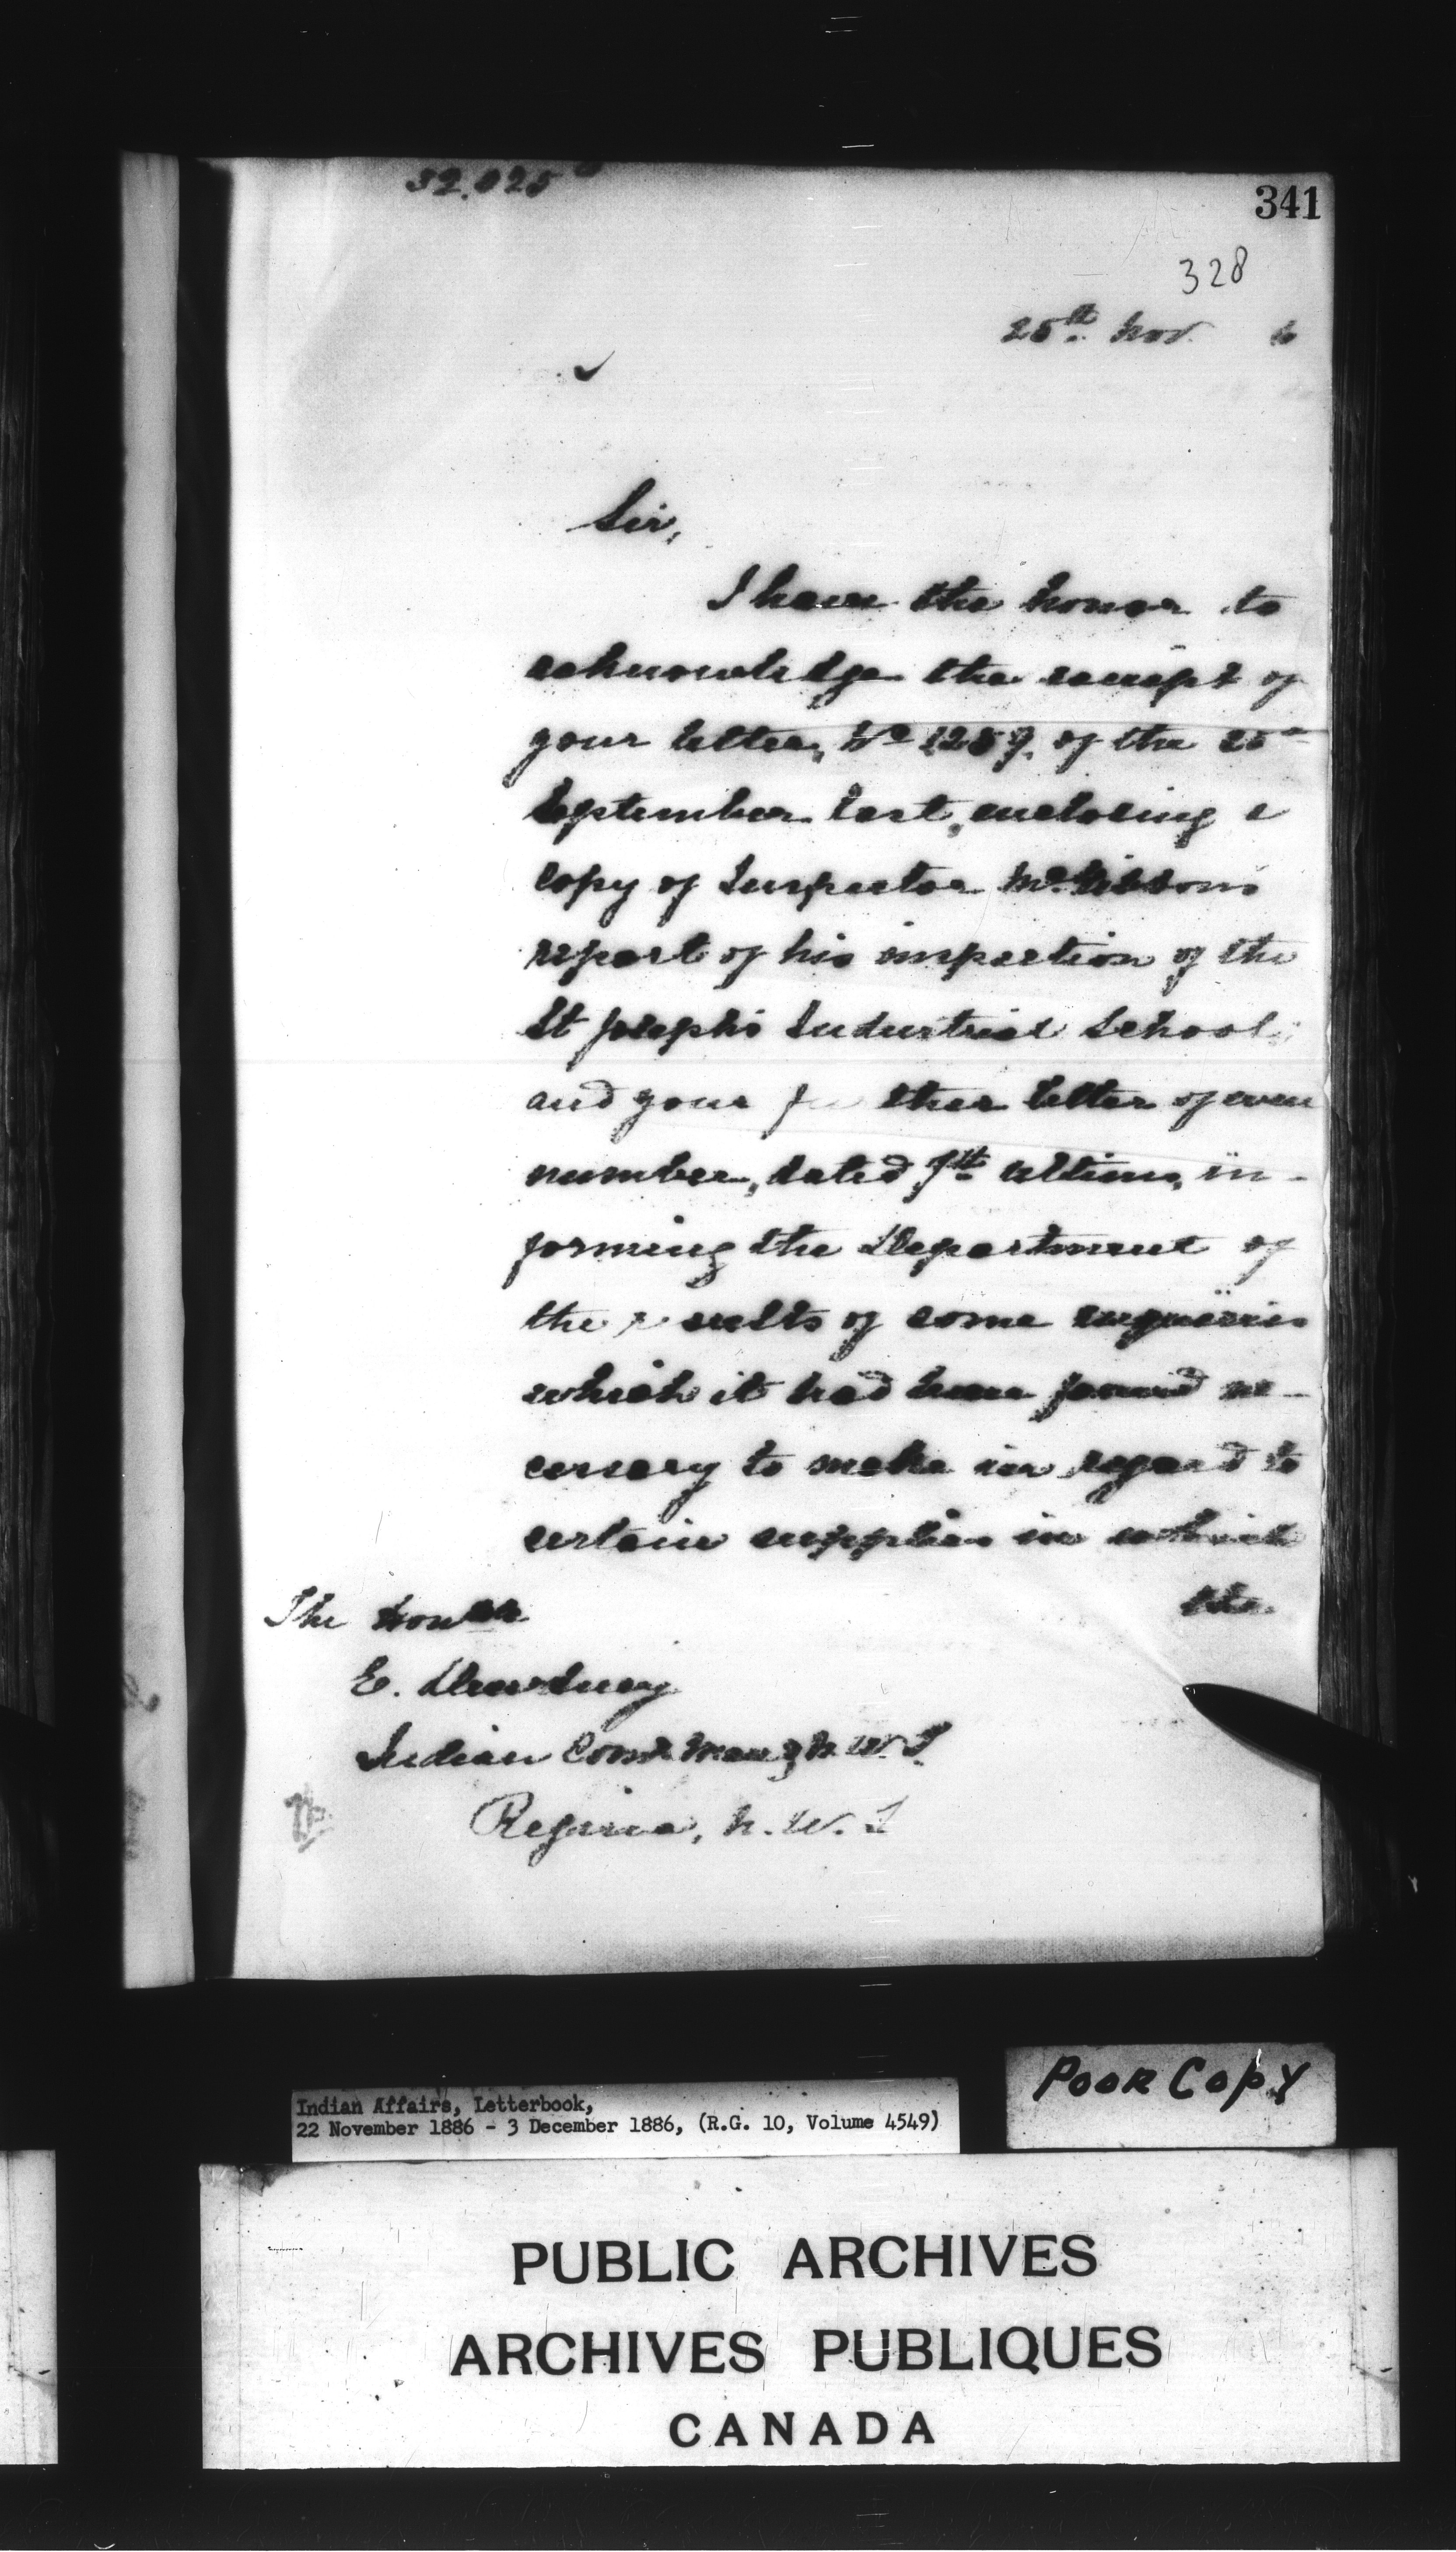 32.025
341
328
25th Nov. 6
Sir,
I have the honor to
acknowledge the receipt of
your letter, No 1289, of the 25th
September last, enclosing a
copy of Inspector McGibbons
report of his inspection of the
St Josephs Industrial School,
and your further letter of even
number, dated 7th ultimo, in-
forming the Department of
the results of some enquiries
which it had been found ne-
cessary to make in regard to
certain supplies in which
the
The Honble
E. Dewdney
Indian Comr Man & N. W. T.
Regina, N. W. T
Poor Copy
Indian Affairs, Letterbook,
22 November 1886 - 3 December 1886, (R.G. 10, Volume 4549)
PUBLIC ARCHIVES
ARCHIVES PUBLIQUES
CANADA